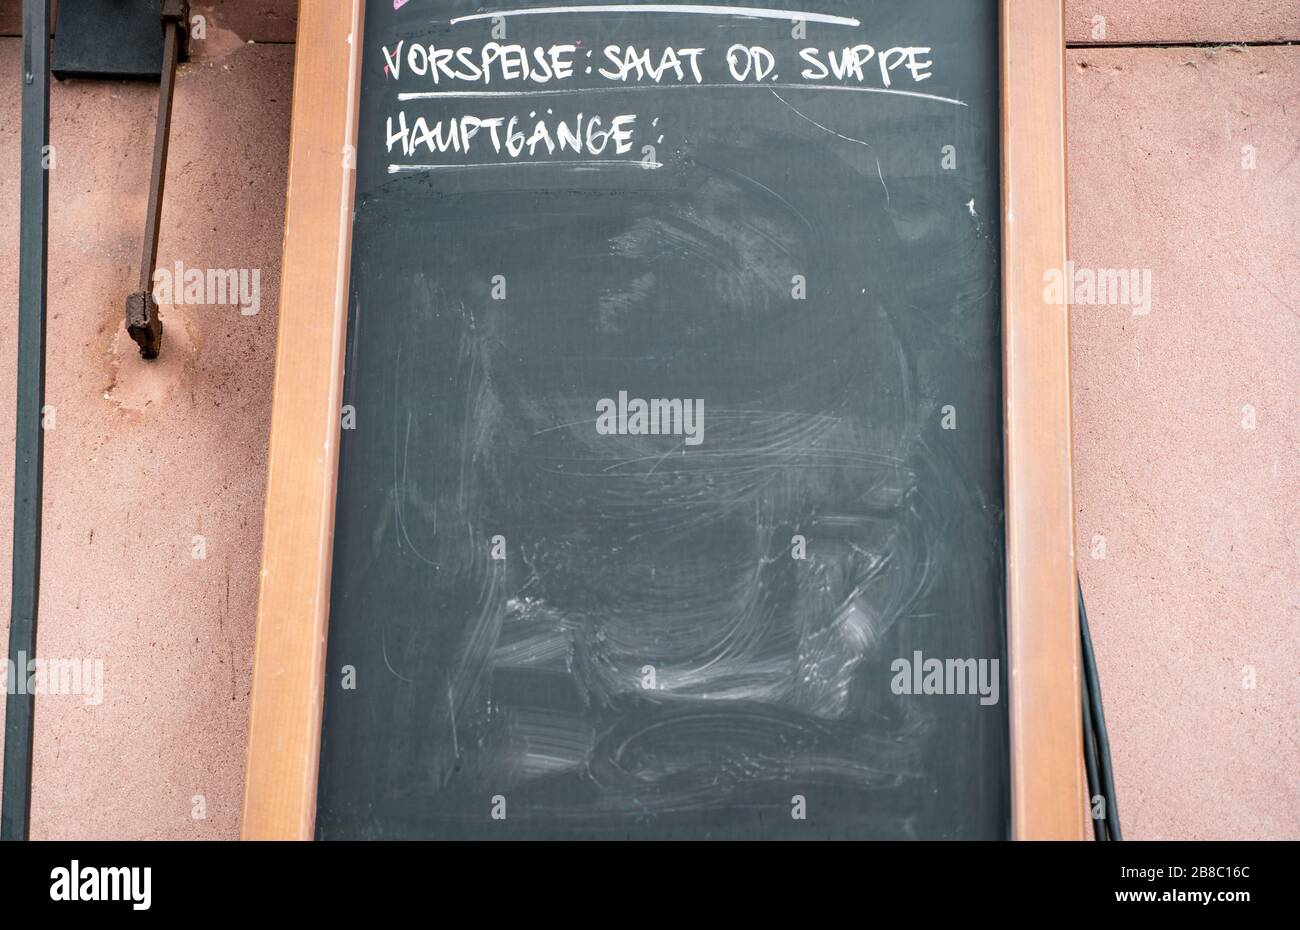 VORSPEISE: SALAT OD. SUPPE
HAUPTGÄNGE:
alamy
alamy
alamy
alamy
a
a
a
a
a
a
a
a
a
a
a
alamy
Image ID: 2B8C16C
www.alamy.com